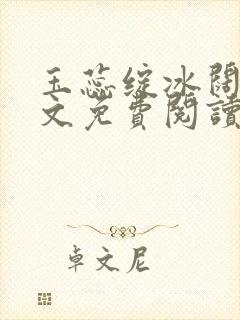 玉蕊绽冰阔
文免費閱讀
卓文尼